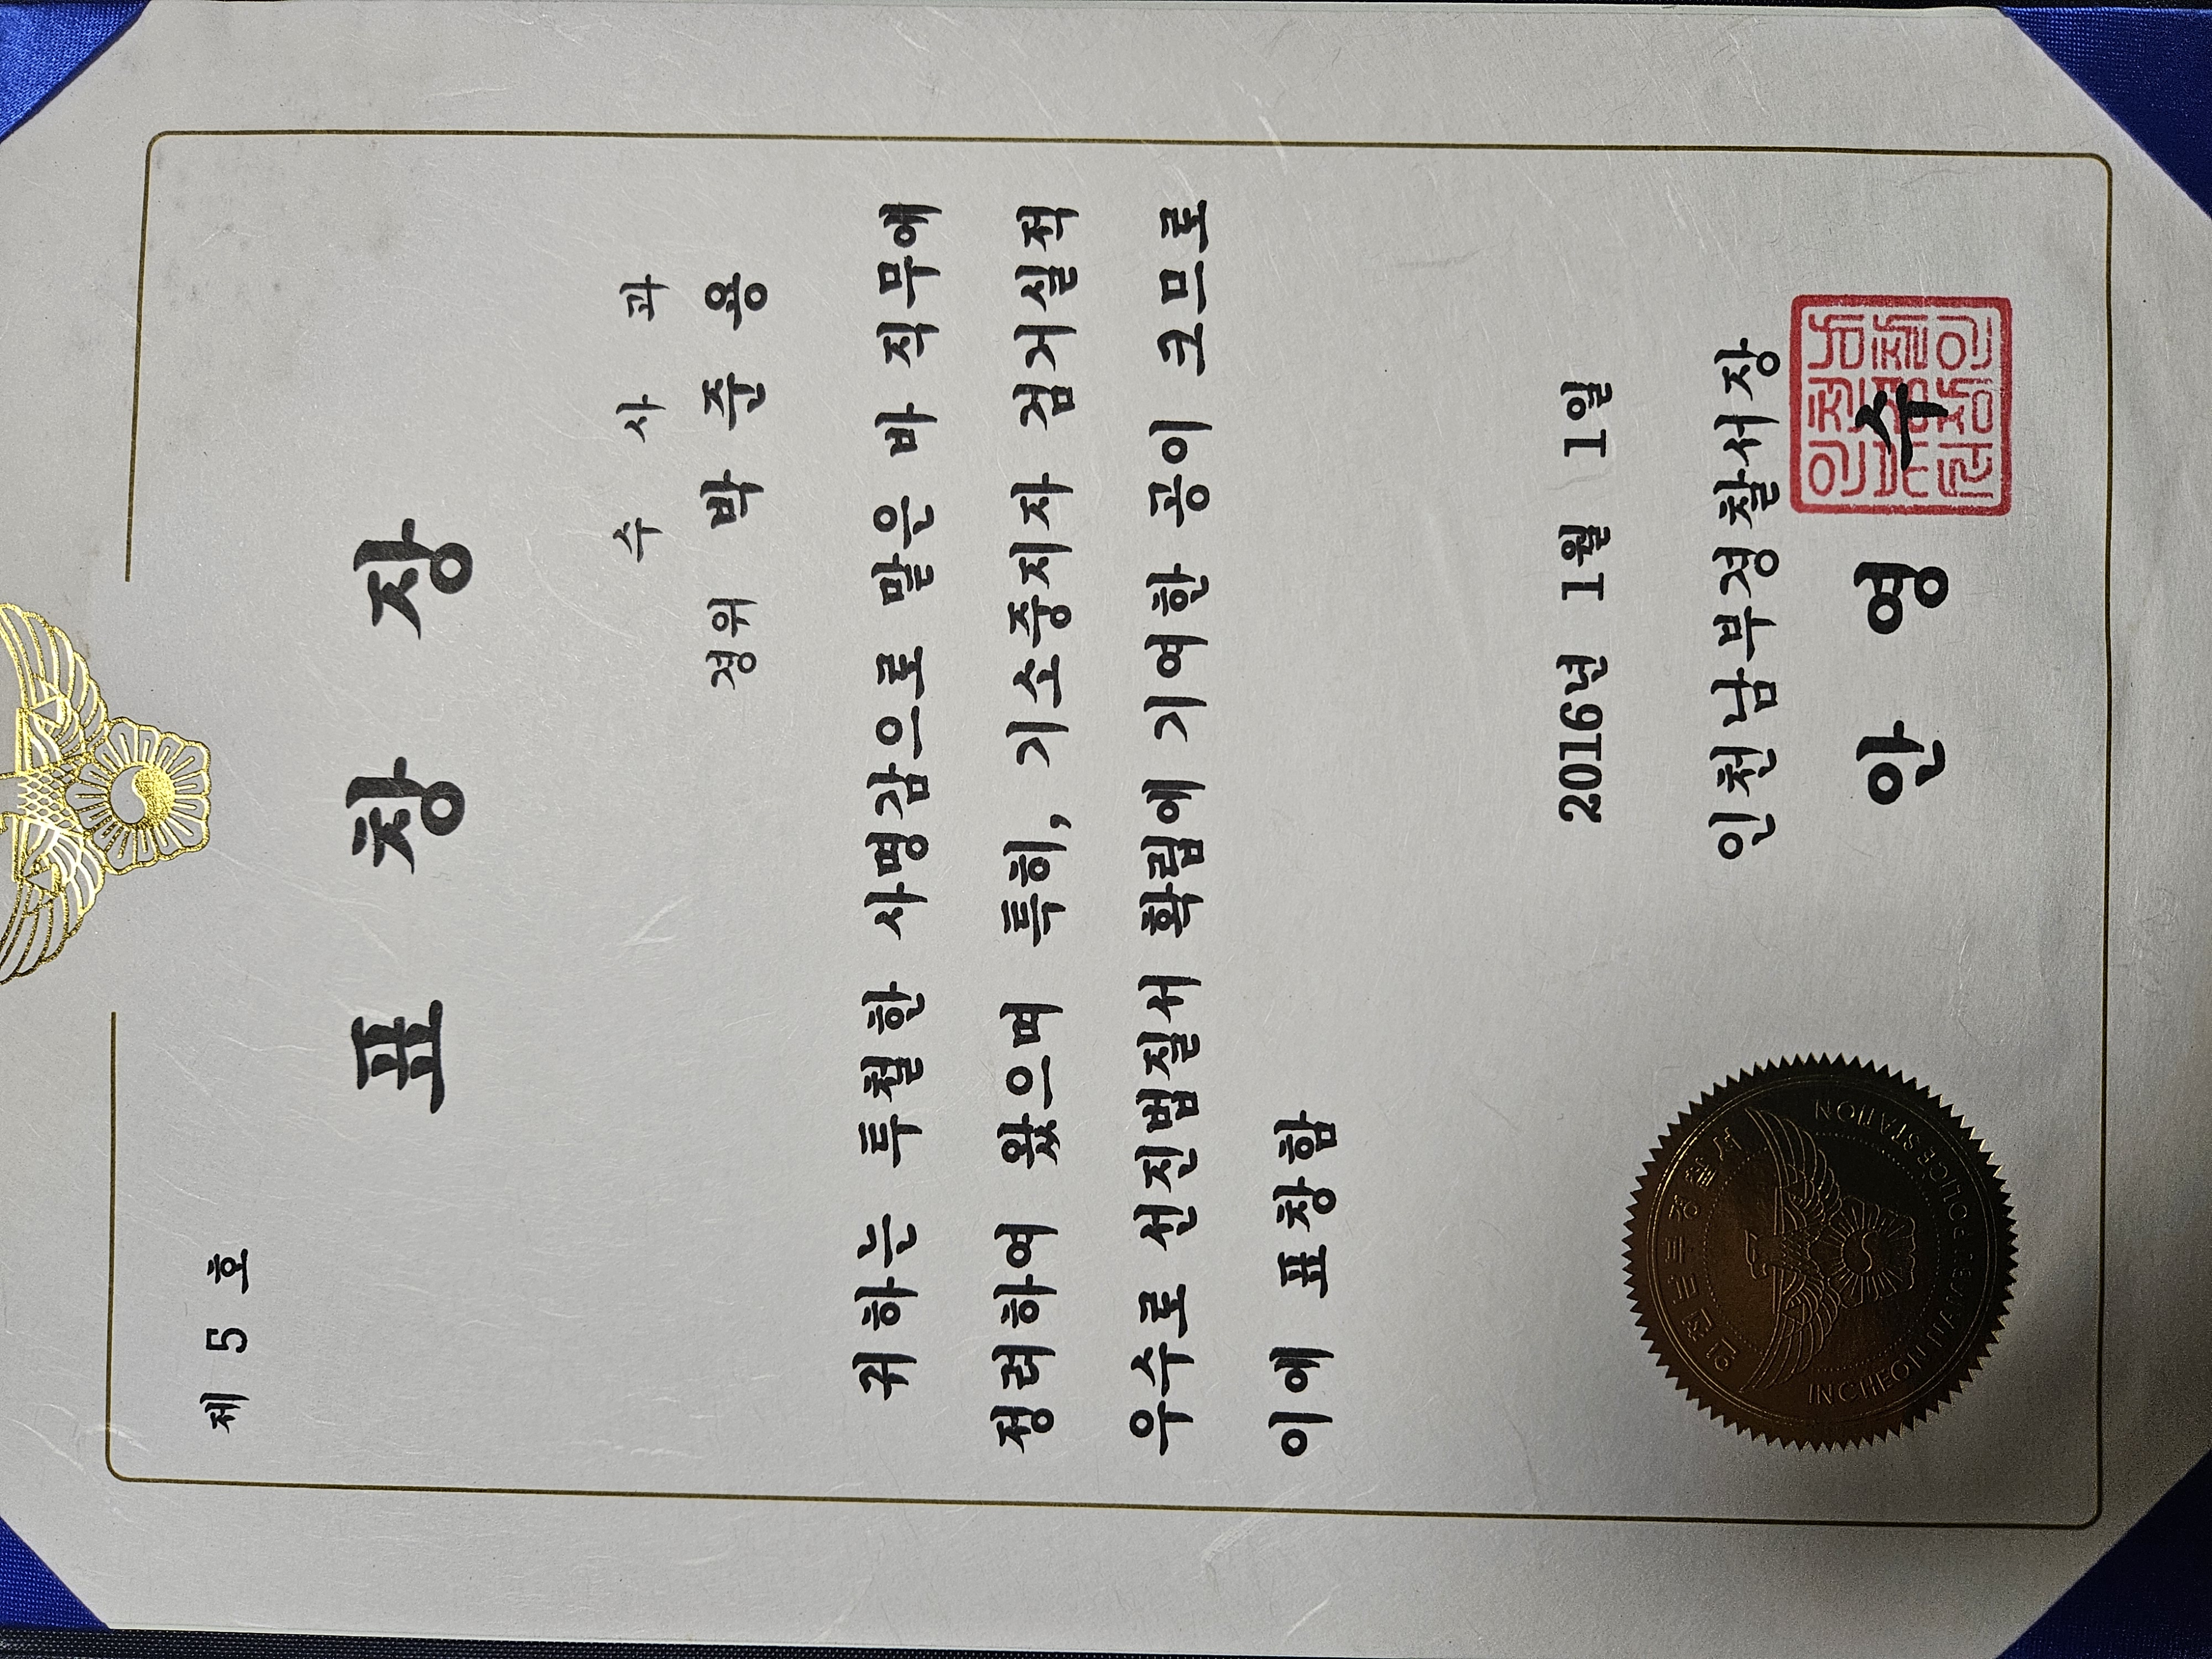 제 5 호
표 창 장
수 사 과
경위 박 주 용
귀하는 투철한 사명감으로 맡은 바 직무에
정려하여 왔으며 특히, 기소중지자 검거실적
우수로 선진법질서 확립에 기여한 공이 크므로
이에 표창함
2016년 1월 1일
인천남부경찰서장
안 영 수
인천남부경찰서
INCHEON NAMBU POLICE STATION